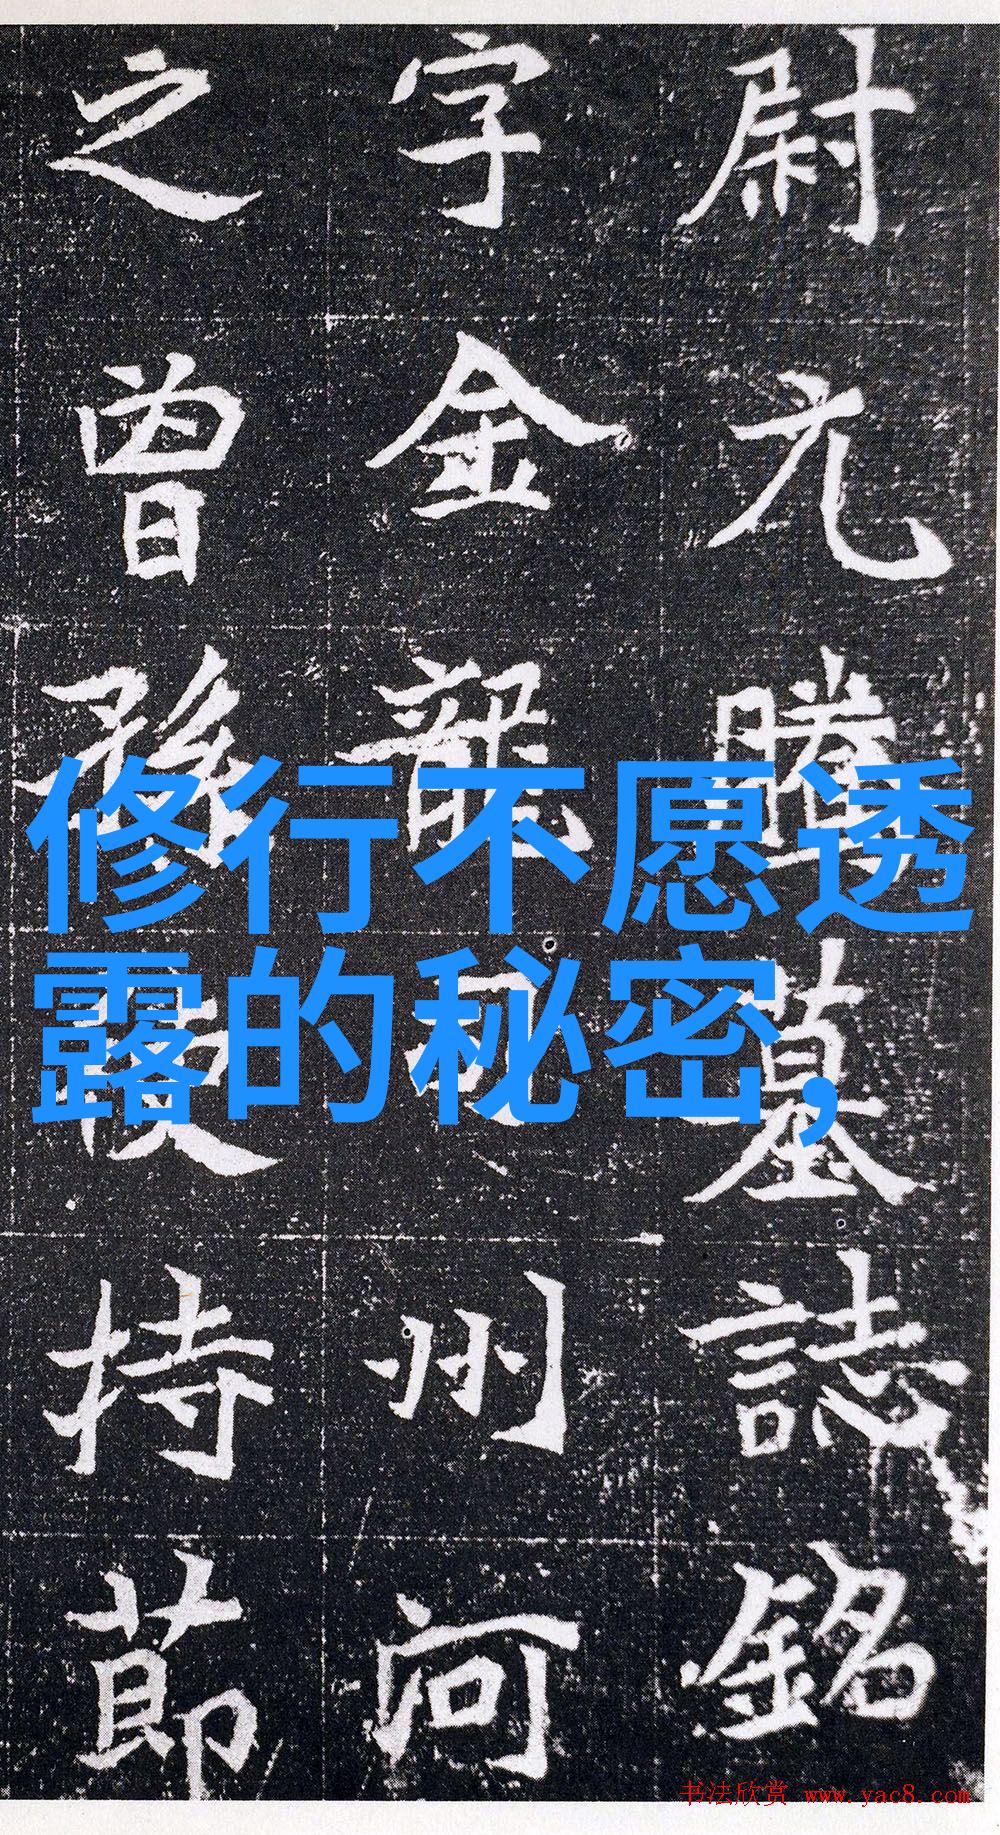 尉元騰墓誌銘
字金龍司州河
之曾孫持節
修行不愿透
露的秘密,
书法欣赏 www.yac8.com